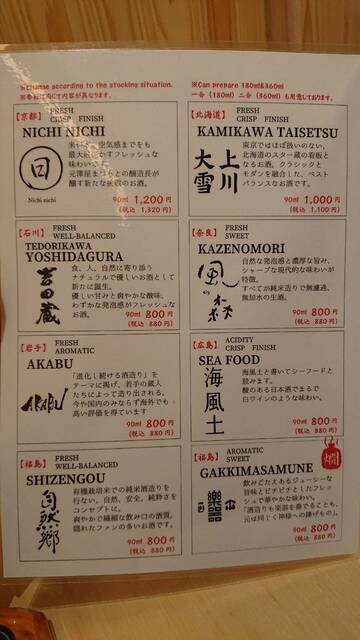 ※Change according to the stocking situation.
※季節に応じて内容が異なります。
※Can prepare 180ml&360ml
一合(180ml)二合(360ml)も用意しております。
【京都】
FRESH
CRISP FINISH
NICHI NICHI
日
Nichi nichi
最大
味わい
元澤屋まつもとの醸造長が
醸す新たな伏見のお酒。
90ml 1,200 円
(税込 1,320 円)
【北海道】
FRESH
CRISP FINISH
KAMIKAWA TAISETSU
上川
大雪
東京でほぼ扱いのない、
北海道のスター蔵の看板と
なるお酒。クラシックと
モダンを融合した、ベスト
バランスなお酒です。
90ml 1,000 円
(税込 1,100 円)
【石川】
FRESH
WELL-BALANCED
TEDORIKAWA
YOSHIDAGURA
吉田蔵
食、人、自然に寄り添う
ナチュラルで優しいお酒として
新たに誕生。
優しい甘みと爽やかな酸味、
わずかな発泡感がフレッシュな
お酒。
90ml 800 円
(税込 880 円)
【奈良】
FRESH
SWEET
KAZENOMORI
風の森
自然な発泡感と濃厚な旨み、
シャープな現代的な味わいが
特徴。
すべてが純米造りで無濾過、
無加水の生酒。
90ml 800 円
(税込 880 円)
【岩手】
FRESH
AROMATIC
AKABU
AKABU
「進化し続ける酒造り」を
テーマに掲げ、若手の蔵人
たちによって造り出される。
今や国内のみならず海外でも
高い評価を得ています
90ml 800 円
(税込 880 円)
【広島】
ACIDITY
CRISP FINISH
SEA FOOD
海風土
海風土と書いてシーフードと
読みます。
酸のある日本酒でまるで
白ワインのような味わい。
90ml 800 円
(税込 880 円)
【福島】
FRESH
WELL-BALANCED
SHIZENGOU
自然郷
有機栽培米での純米酒造りを
行ない、自然、安全、純粋さを
コンセプトに。
爽やかで繊細な飲み口の酒質。
隠れたファンの多いお酒です。
90ml 800 円
(税込 880 円)
【福島】
AROMATIC
SWEET
燗
GAKKIMASAMUNE
樂器正宗
飲みごたえあるジューシーな
旨味とピチピチとしたフレッ
シュで華やかな味わい。
「酒造りも楽器を奏でることも、
元は同じく神様への捧げもの」。
90ml 800 円
(税込 880 円)